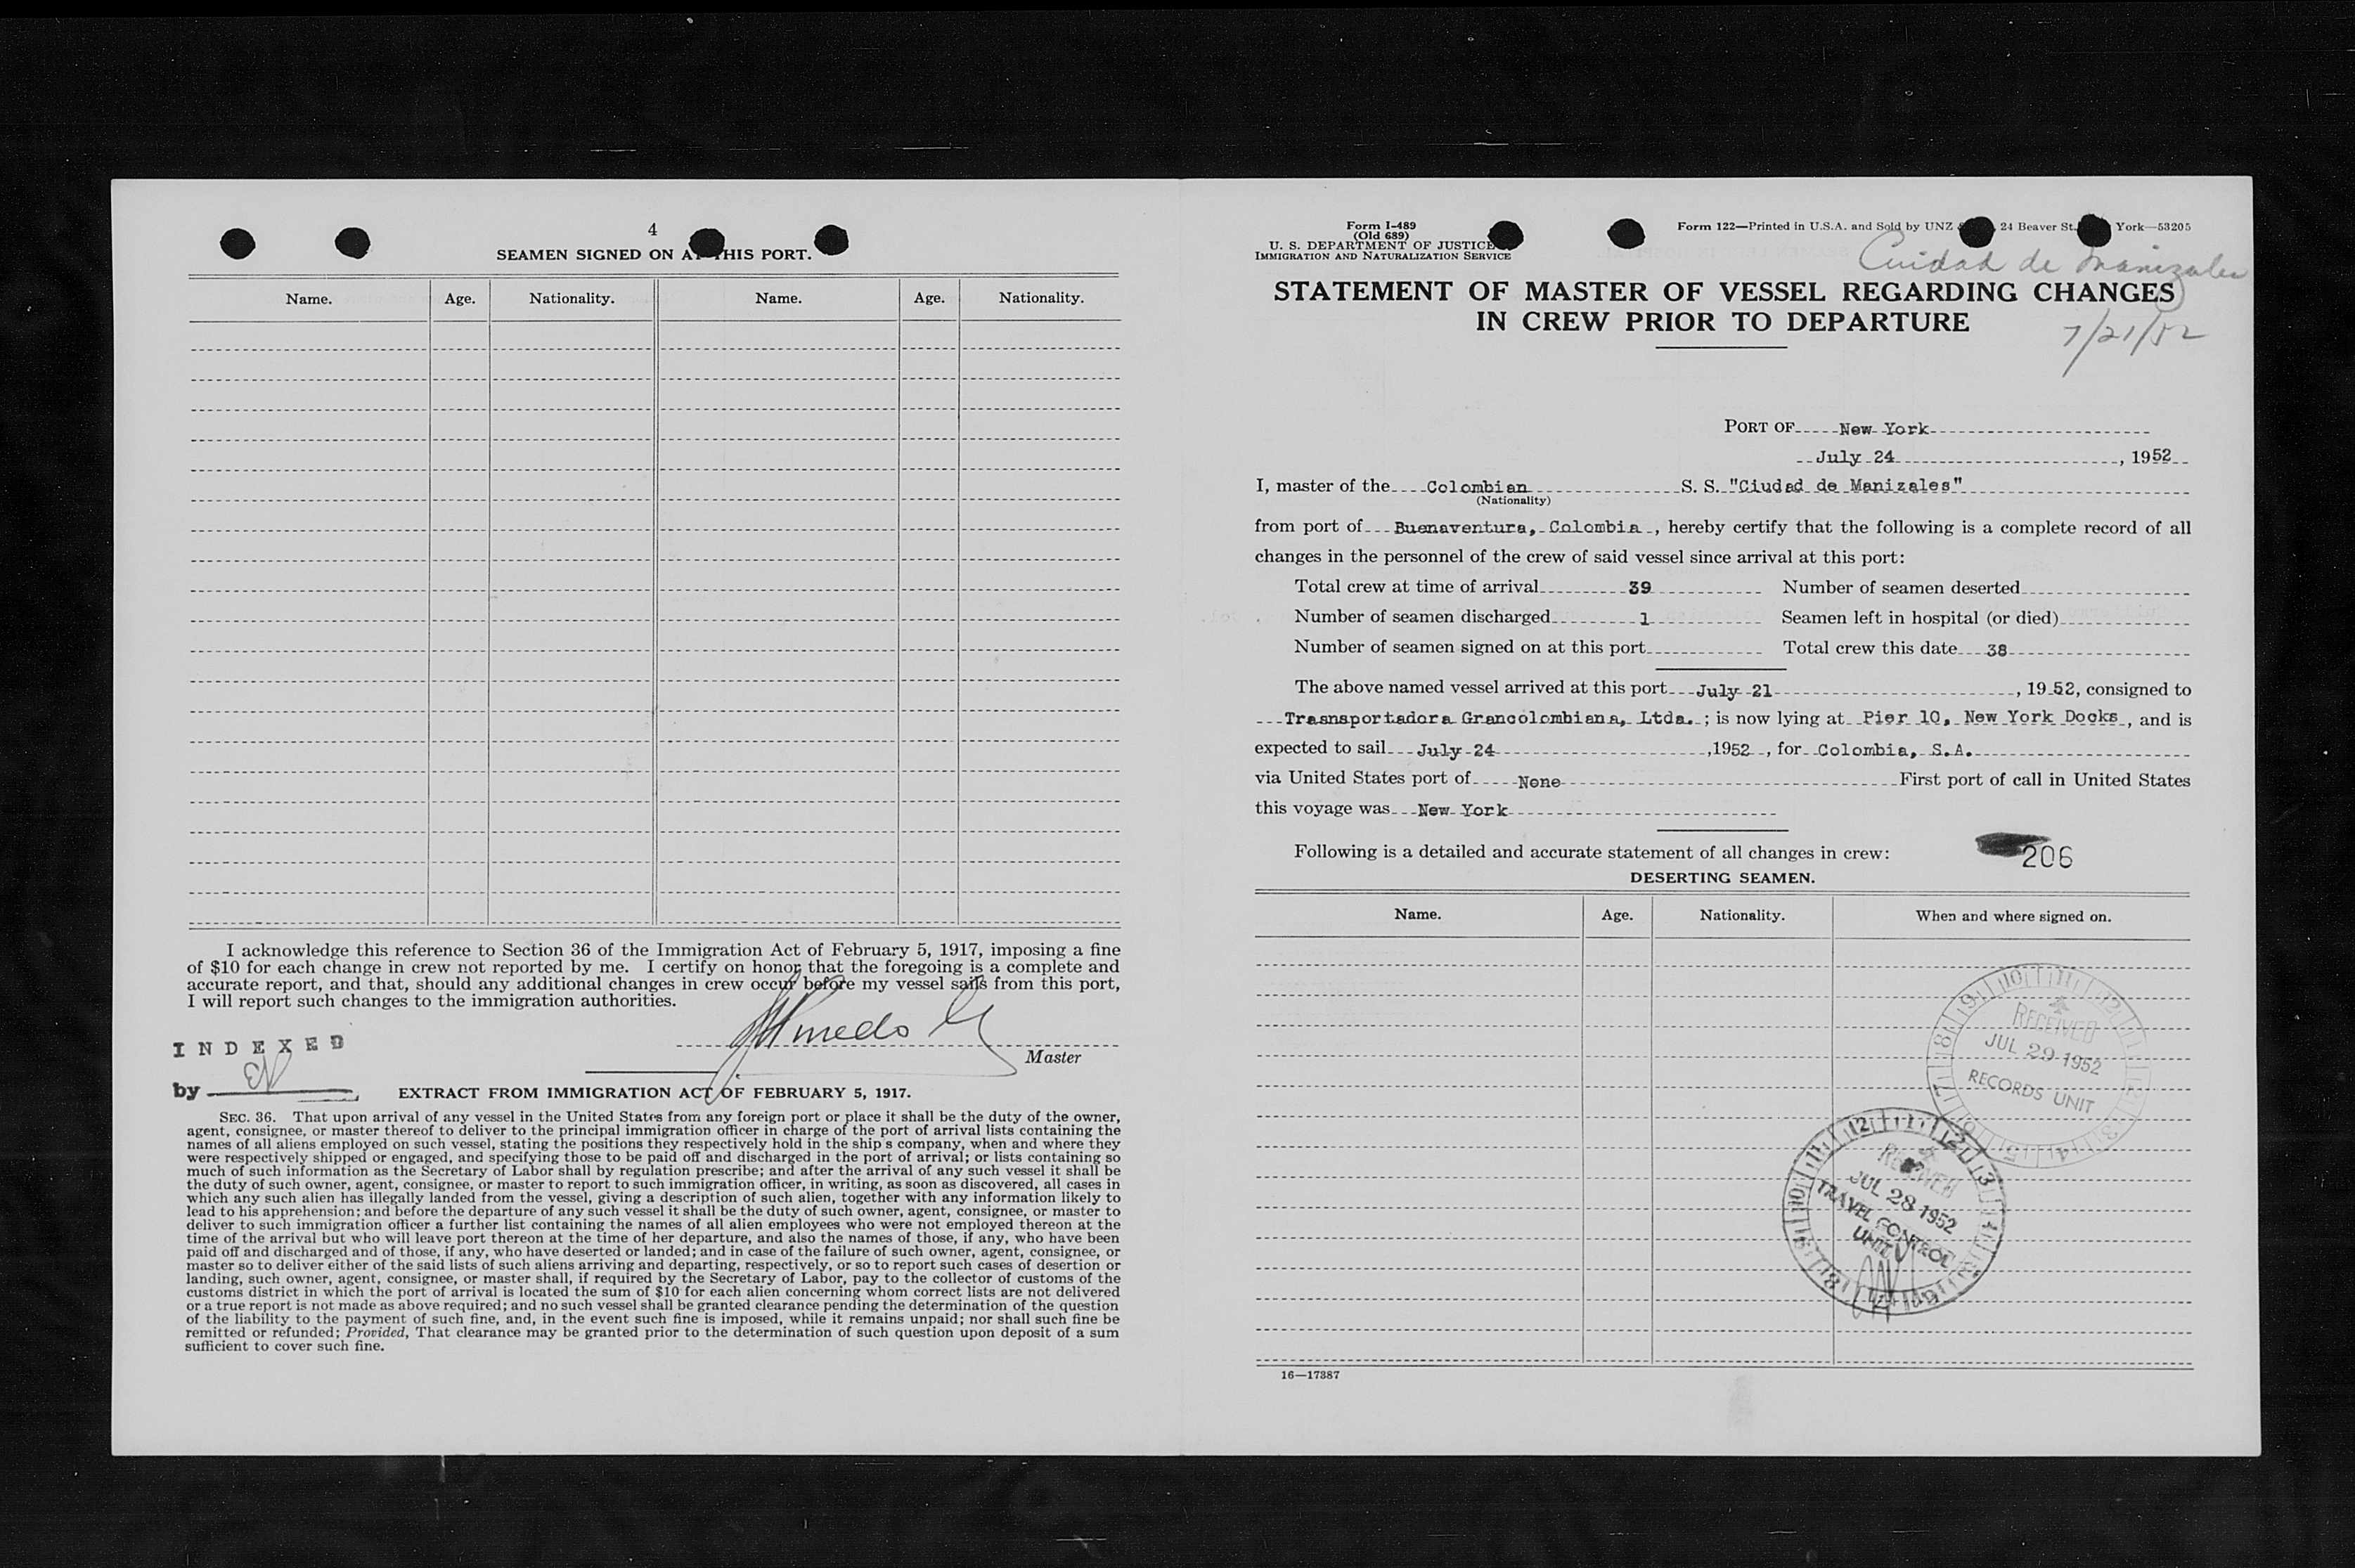 4
SEAMEN SIGNED ON AT THIS PORT.
Name. Age. Nationality. Name. Age. Nationality.
I acknowledge this reference to Section 36 of the Immigration Act of February 5, 1917, imposing a fine
of $10 for each change in crew not reported by me. I certify on honor that the foregoing is a complete and
accurate report, and that, should any additional changes in crew occur before my vessel sails from this port,
I will report such changes to the immigration authorities.
INDEXED
Master
by
EXTRACT FROM IMMIGRATION ACT OF FEBRUARY 5, 1917.
SEC. 36. That upon arrival of any vessel in the United States from any foreign port or place it shall be the duty of the owner,
agent, consignee, or master thereof to deliver to the principal immigration officer in charge of the port of arrival lists containing the
names of all aliens employed on such vessel, stating the positions they respectively hold in the ship's company, when and where they
were respectively shipped or engaged, and specifying those to be paid off and discharged in the port of arrival; or lists containing so
much of such information as the Secretary of Labor shall by regulation prescribe; and after the arrival of any such vessel it shall be
the duty of such owner, agent, consignee, or master to report to such immigration officer, in writing, as soon as discovered, all cases in
which any such alien has illegally landed from the vessel, giving a description of such alien, together with any information likely to
lead to his apprehension; and before the departure of any such vessel it shall be the duty of such owner, agent, consignee, or master to
deliver to such immigration officer a further list containing the names of all alien employees who were not employed thereon at the
time of the arrival but who will leave port thereon at the time of her departure, and also the names of those, if any, who have been
paid off and discharged and of those, if any, who have deserted or landed; and in case of the failure of such owner, agent, consignee, or
master so to deliver either of the said lists of such aliens arriving and departing, respectively, or so to report such cases of desertion or
landing, such owner, agent, consignee, or master shall, if required by the Secretary of Labor, pay to the collector of customs of the
customs district in which the port of arrival is located the sum of $10 for each alien concerning whom correct lists are not delivered
or a true report is not made as above required; and no such vessel shall be granted clearance pending the determination of the question
of the liability to the payment of such fine, and, in the event such fine is imposed, while it remains unpaid; nor shall such fine be
remitted or refunded; Provided, That clearance may be granted prior to the determination of such question upon deposit of a sum
sufficient to cover such fine.
Form I-489
(Old 689)
U. S. DEPARTMENT OF JUSTICE
IMMIGRATION AND NATURALIZATION SERVICE
Form 122—Printed in U.S.A. and Sold by UNZ 24 Beaver St. York—53205
Cuidad de Manizales
STATEMENT OF MASTER OF VESSEL REGARDING CHANGES
IN CREW PRIOR TO DEPARTURE
7/21/52
PORT OF New York
July 24, 1952
I, master of the Colombian S. S. "Ciudad de Manizales"
(Nationality)
from port of Buenaventura, Colombia, hereby certify that the following is a complete record of all
changes in the personnel of the crew of said vessel since arrival at this port:
Total crew at time of arrival 39 Number of seamen deserted
Number of seamen discharged 1 Seamen left in hospital (or died)
Number of seamen signed on at this port Total crew this date 38
The above named vessel arrived at this port July 21, 1952, consigned to
Trasnsportadora Grancolombiana, Ltda.; is now lying at Pier 10, New York Docks, and is
expected to sail July 24, 1952, for Colombia, S.A.
via United States port of None First port of call in United States
this voyage was New York
Following is a detailed and accurate statement of all changes in crew:
206
DESERTING SEAMEN.
Name. Age. Nationality. When and where signed on.
RECEIVED
JUL 29 1952
RECORDS UNIT
RECEIVED
JUL 28 1952
TRAVEL CONTROL
UNIT
16—17387